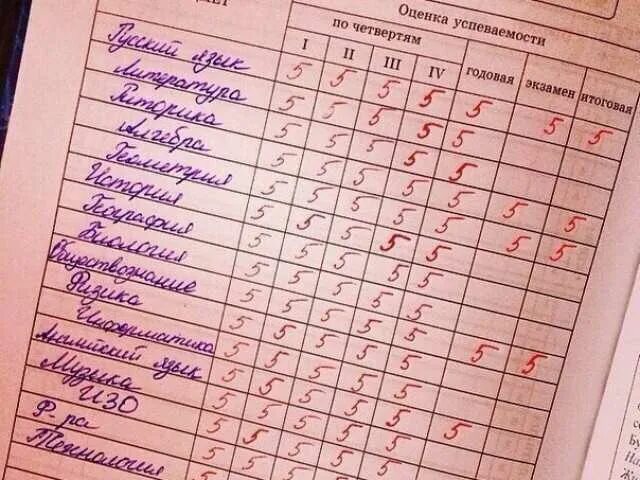 Оценка успеваемости
по четвертям годовая экзамен итоговая
I II III IV
Русский язык 5 5 5 5 5 5 5
Литература 5 5 5 5 5
Риторика 5 5 5 5 5
Алгебра 5 5 5 5 5 5 5
Геометрия 5 5 5 5 5 5 5
История 5 5 5 5 5
География 5 5 5 5 5
Биология 5 5 5 5
Обществознание 5 5 5 5
Физика 5 5 5 5 5 5
Информатика 5 5 5 5
Английский язык 5 5 5 5
Музыка 5 5 5 5 5
ИЗО 5 5 5 5
Ф. ра 5 5 5 5
Технология 5 5 5